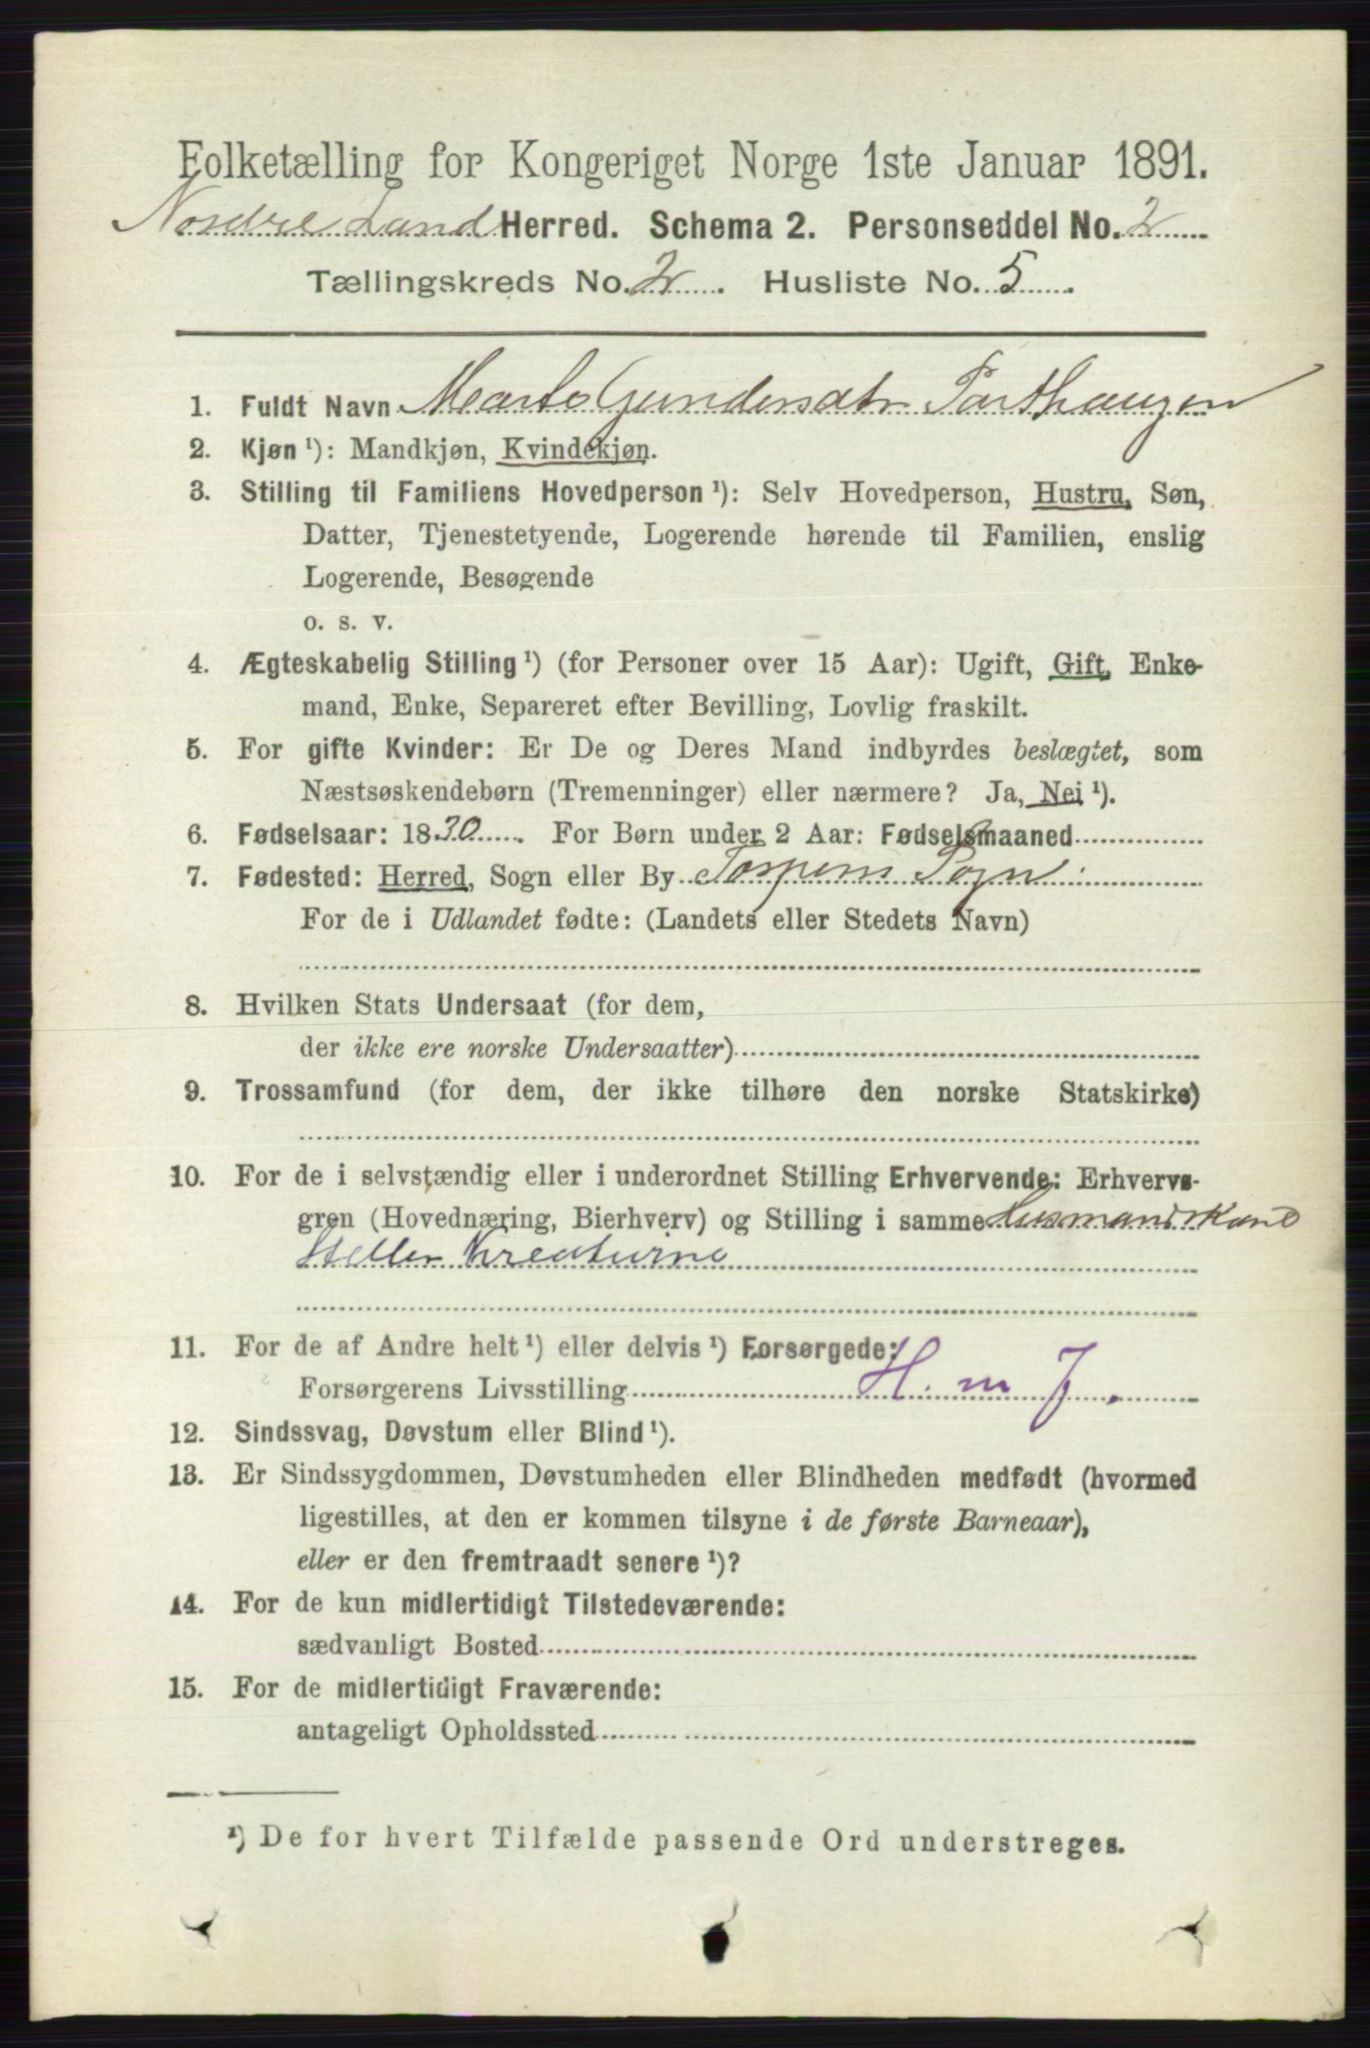 Folketælling for Kongeriget Norge 1ste Januar 1891.
Nordre Land Herred. Schema 2. Personseddel No. 2
Tællingskreds No. 2. Husliste No. 5.
1. Fuldt Navn Marte Gundersdtr
2. Kjøn ¹): Mandkjøn, Kvindekjøn.
3. Stilling til Familiens Hovedperson ¹): Selv Hovedperson, Hustru, Søn,
Datter, Tjenestetyende, Logerende hørende til Familien, enslig
Logerende, Besøgende
o. s. v.
4. Ægteskabelig Stilling ¹) (for Personer over 15 Aar): Ugift, Gift, Enke-
mand, Enke, Separeret efter Bevilling, Lovlig fraskilt.
5. For gifte Kvinder: Er De og Deres Mand indbyrdes beslægtet, som
Næstsøskendebørn (Tremenninger) eller nærmere? Ja, Nei ¹).
6. Fødselsaar: 1830. For Børn under 2 Aar: Fødselsmaaned
7. Fødested: Herred, Sogn eller By Torpens Sogn
For de i Udlandet fødte: (Landets eller Stedets Navn)
8. Hvilken Stats Undersaat (for dem,
der ikke ere norske Undersaatter)
9. Trossamfund (for dem, der ikke tilhøre den norske Statskirke)
10. For de i selvstændig eller i underordnet Stilling Erhvervende: Erhvervs-
gren (Hovednæring, Bierhverv) og Stilling i samme Husmandskone
Steller Kreaturne
11. For de af Andre helt ¹) eller delvis ¹) Forsørgede:
Forsørgerens Livsstilling H. m J.
12. Sindssvag, Døvstum eller Blind ¹).
13. Er Sindssygdommen, Døvstumheden eller Blindheden medfødt (hvormed
ligestilles, at den er kommen tilsyne i de første Barneaar),
eller er den fremtraadt senere ¹)?
14. For de kun midlertidigt Tilstedeværende:
sædvanligt Bosted
15. For de midlertidigt Fraværende:
antageligt Opholdssted
¹) De for hvert Tilfælde passende Ord understreges.